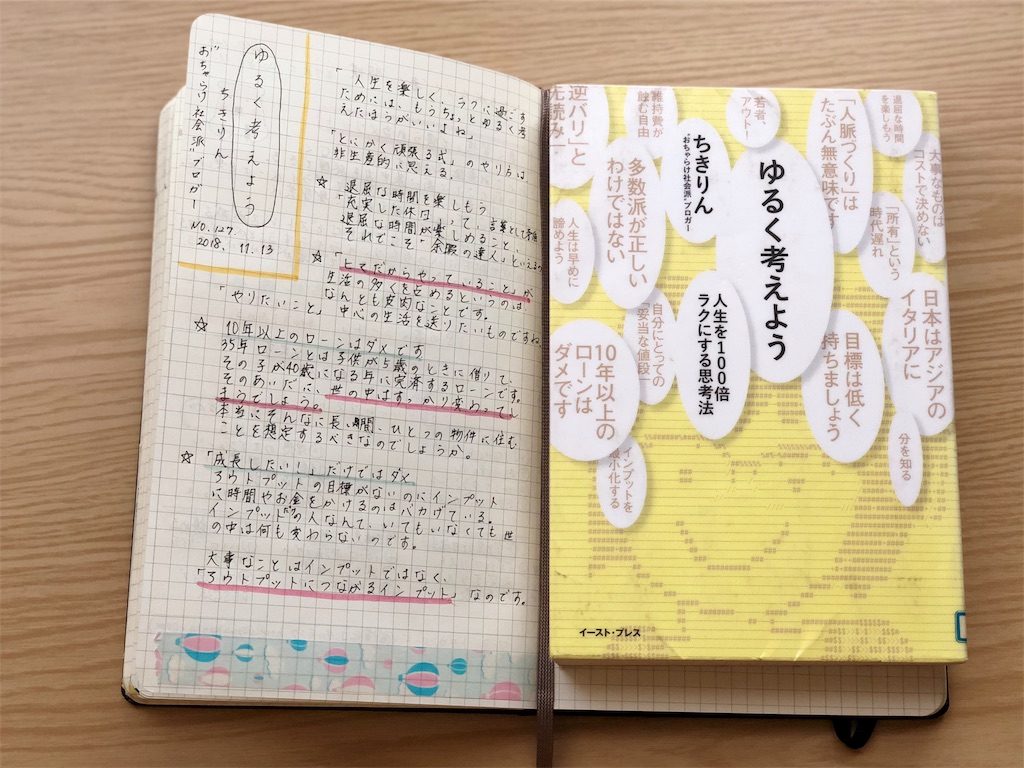 ゆるく考えよう
ちきりん
"おちゃらけ社会派"ブロガー
NO.127.
2018. 11. 13
「人生を楽しく、ラクに過ごす
ためには、もうちょっとゆるく考
えたほうがいいよね。
「とにかく頑張る式」のやり方は、
非生産的に思える。
☆ 退屈な時間を楽しもう
「充実した休日」って、言葉として矛盾
退屈な時間が楽しめること、
それでこそ「余暇の達人」といえるの
☆ 「上手だからやっていること」が
生活の多くを占めるというのは、
なんとも皮肉なことです。
「やりたいこと」中心の生活を送りたいものですね
☆ 10年以上のローンはダメです
35年ローンとは子供が5歳のときに借りて、
その子が40歳になる年に完済するローンです。
そのあいだに、世の中はすっかり変わってし
まうでしょう。
本当にそんなに長い期間、ひとつの物件に住む
ことを想定するべきなのでしょうか。
☆ 「成長したい!」だけではダメ
アウトプットの目標がないのにインプット
に時間やお金をかけるのはバカげている。
インプットだけの人なんて、いてもいなくても世
の中は何も変わらないのです。
大事なことはインプットではなく、
「アウトプットにつながるインプット」なのです。
退屈な時間
を楽しもう
大事なものは
コストで決めない
「所有」という
時代遅れ
日本はアジアの
イタリアに
分を知る
「人脈づくり」は
たぶん無意味です
目標は低く
持ちましょう
若者、
アウトー!
ゆるく考えよう
人生を100倍
ラクにする思考法
ちきりん
"おちゃらけ社会派"ブロガー
維持費が
蝕む自由
多数派が正しい
わけではない
自分にとっての
妥当な値段
インプットを
最小化する
「逆バリ」と
「先読み」
人生は早めに
諦めよう
10年以上の
ローンは
ダメです
イースト・プレス